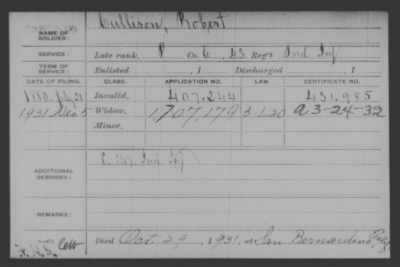 Cullison, Robert
NAME OF SOLDIER:
SERVICE: Late rank, P Co. C, 43 Reg't Ind Inf
TERM OF SERVICE: Enlisted , 1 Discharged , 1
DATE OF FILING. CLASS. APPLICATION NO. LAW. CERTIFICATE NO.
1880 July 21 Invalid, 407.244 431.985
1931 Dec 5 Widow, 1,707,179 5-1-20 a 3-24-32
Minor,
C. 147 Ind Inf
ADDITIONAL SERVICES:
REMARKS:
Died Oct 29, 1931, at San Bernardino Calif